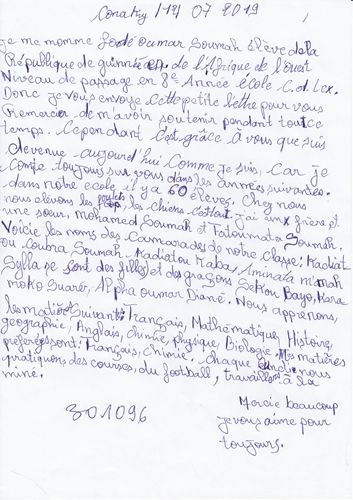 Conakry /12/ 07 2019
Je me momme Fodé oumar Soumah élève de la
République de guinnée en de l'Afrique de l'ouest
Niveau de passage en 8e Année école C.d. Lex.
Donc je vous envoye cette petite lettre pour vous
Remercier de m'avoir soutenir pendant toutce
temps. Cependant c'est grâce à vous que suis
devenue aujourd'hui comme je suis, car je
compte toujours sur vous dans les années suivantes.
dans notre ecole il y a 60 élèves. Chez nous
nous élevons les les chiens j'ai un frère et
une sœur, Mohamed Soumah et Fatoumata Soumah.
Voicie les noms des Camarades de notre classe: Kadiat
ou Coumba Soumah. Kadiatou Kaba, Aminata mimah
Sylla se sont des filles et des gragons Sekou Bayo, Kara
moko Suaré, Alpha oumar Diané. Nous apprenons,
les matières suivant: Français, Mathématique, Histoire,
geographie, Anglais, chimie, physique, Biologie. Mes matières
préferées sont: Français, Chimie. chaque nous
pratiquons des courses, du football, travaillons à la
miné.
Mercie beaucoup
301096
je vous aime pour
toujours.